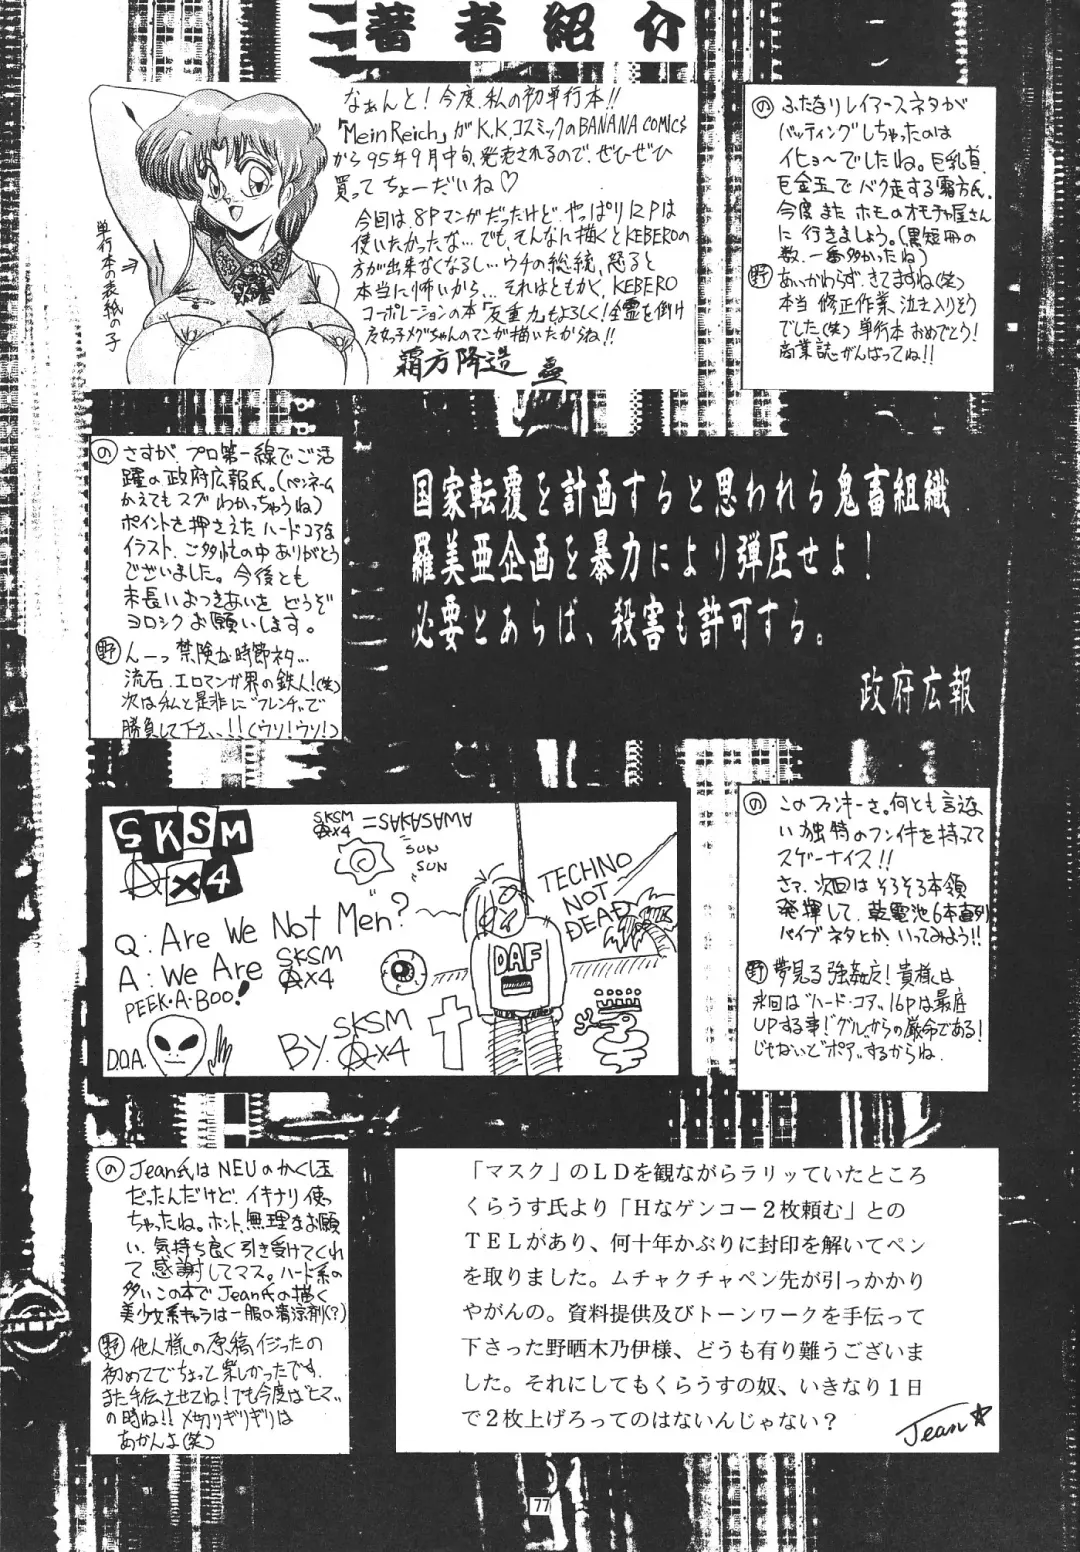 著者紹介
なぁんと!今度、私の初単行本!!
「MeinReich」がK.K.コスミックのBANANA COMICS
から95年9月中旬、発売されるので、ぜひぜひ
買ってちょーだいね♡
今回は、8Pマンガだったけど、やっぱり12Pは
使いたかったな…でも、そんなに描くとKEBEROの
方が出来なくなるし…ウチの総統、怒ると
本当に怖いから…それはともかく、KEBERO
コーポレーションの本「反重力もよろしく!全霊を傾け
メグちゃんのマンガ描いたからね!!
霜方降造
単行本の表紙の子
の ふたなりレイアースネタが
バッティングしちゃったのは
イヒョ〜でしたね。巨乳首、
巨金玉でバク走する霜方氏、
今度また ホモのオモチャ屋さん
に行きましょう。(黒短冊の
数、一番多かったね)
野 あいかわらず、きてますね(笑)
本当 修正作業、泣き入りそう
でした(笑) 単行本おめでとう!
商業誌がんばってね!!
の さすが、プロ第一線でご活
躍の政府広報氏。(ペンネーム
かえてもスグわかっちゃうね)
ポイントを押さえたハードコアな
イラスト、ご多忙の中ありがとう
ございました。今後とも
末長いおつきあいを どうぞ
ヨロシクお願いします。
野 んーっ 禁険な時節ネタ…
流石、エロマンガ界の鉄人!(笑)
次は私と是非に"フレンチ"で
勝負して下さい!!(ウソ!ウソ!)
国家転覆を計画すると思われる鬼畜組織
羅美亜企画を暴力により弾圧せよ!
必要とあらば、殺害も許可する。
政府広報
SKSM
Ⓐ×4
SKSM
Ⓐ×4 =SAKASAMA
SUN
SUN
Q: Are We Not Men?
A: We Are SKSM
Ⓐ×4
PEEK・A・BOO!
D.O.A.
BY. SKSM
Ⓐ×4
TECHNO
NOT
DEAD
DAF
の このファンキーさ。何とも言えな
い独特のフンイ件を持ってて
スゲーナイス!!
さァ、次回はそろそろ本領
発揮して、乾電池6本直列
バイブネタとか、いってみよう!!
野 夢見る強姦友!貴様は
次回は"ハード・コア"16Pは最底
UPする事!"グル"からの厳命である!
じゃないと"ポア"するからね.
の Jean氏はNEUのかくし玉
だったんだけど、イキナリ使っ
ちゃったね。ホント、無理なお願
い、気持ち良く引き受けてくれ
て感謝してマス。ハード系の
多いこの本でJean氏の描く
美少女系キャラは一服の清涼剤(?)
野 他人様の原稿イジったの
初めてでちょっと楽しかったです.
また手伝させてね!でも今度は
の時ね!!〆切りギリギリは
あかんよ(笑)
「マスク」のLDを観ながらラリッていたところ
くらうす氏より「Hなゲンコー2枚頼む」との
TELがあり、何十年かぶりに封印を解いてペン
を取りました。ムチャクチャペン先が引っかかり
やがんの。資料提供及びトーンワークを手伝って
下さった野晒木乃伊様、どうも有り難うございま
した。それにしてもくらうすの奴、いきなり1日
で2枚上げろってのはないんじゃない?
Jean☆
77